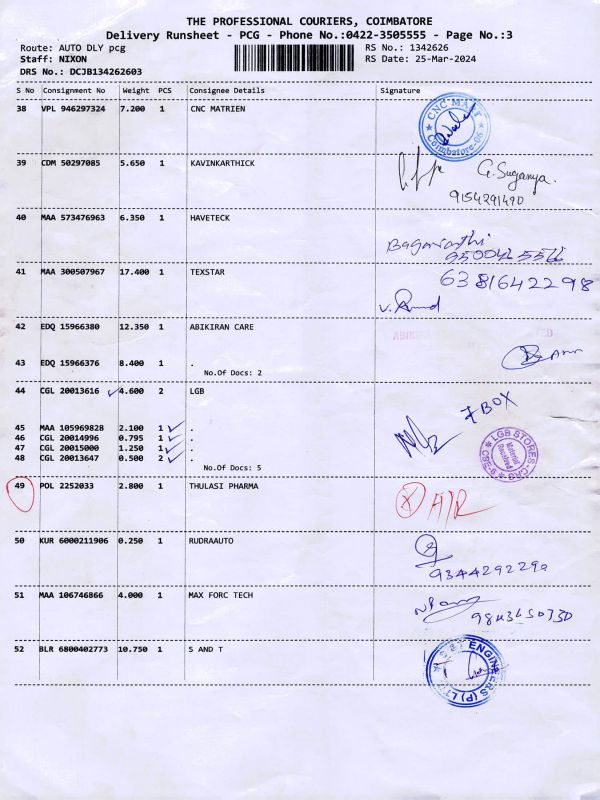 THE PROFESSIONAL COURIERS, COIMBATORE
Delivery Runsheet - PCG - Phone No.:0422-3505555 - Page No.:3
Route: AUTO DLY pcg RS No.: 1342626
Staff: NIXON RS Date: 25-Mar-2024
DRS No.: DCJB134262603
S No Consignment No Weight PCS Consignee Details Signature
38 VPL 946297324 7.200 1 CNC MATRIEN
CNC MATT
Coimbatore-06
39 CDM 50297085 5.650 1 KAVINKARTHICK
G. Suganya.
9154291490
40 MAA 573476963 6.350 1 HAVETECK
41 MAA 300507967 17.400 1 TEXSTAR
6381642298
42 EDQ 15966380 12.350 1 ABIKIRAN CARE
43 EDQ 15966376 8.400 1 .
No.Of Docs: 2
44 CGL 20013616 4.600 2 LGB
7 BOX
45 MAA 105969828 2.100 1 .
46 CGL 20014996 0.795 1 .
47 CGL 20015000 1.250 1 .
48 CGL 20013647 0.500 2 .
No.Of Docs: 5
LGB STORES-CRS
CBE-6
Material
Received
49 POL 2252033 2.800 1 THULASI PHARMA
X AIR
50 KUR 6000211906 0.250 1 RUDRAAUTO
9344292290
51 MAA 106746866 4.000 1 MAX FORC TECH
9843650730
52 BLR 6800402773 10.750 1 S AND T
S&T ENGINEERS (P) LTD